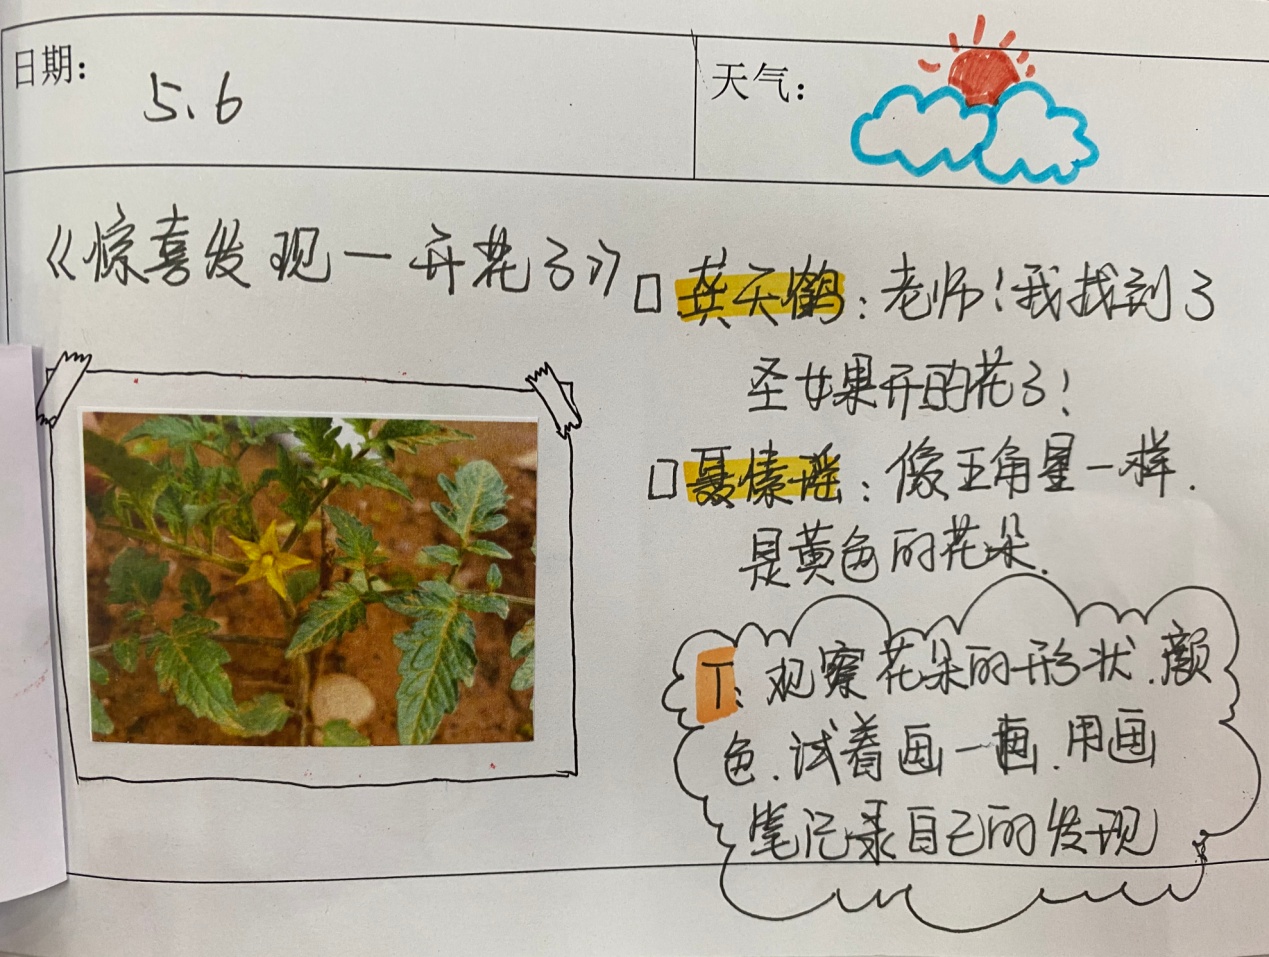 日期：
5.6
天气：
《惊喜发现一开花了》
龚天鹤：老师！我找到了
圣女果开的花了！
聂愫瑶：像五角星一样.
是黄色的花朵.
T：观察花朵的形状.颜
色.试着画一画.用画
笔记录自己的发现